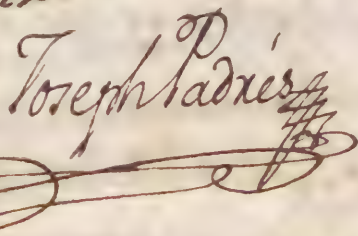 Joseph Padrés